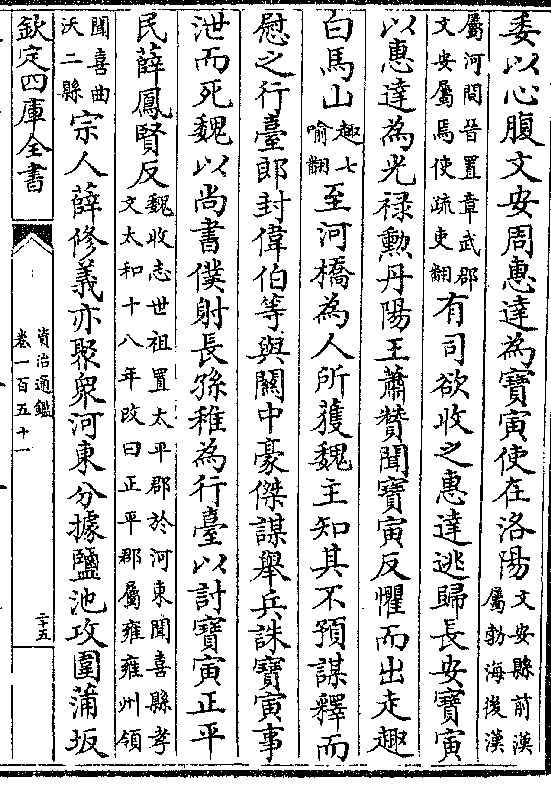 委以心腹文安周惠達為寶寅使在洛陽文安縣前漢屬勃海後漢
屬河間晉置章武郡文安屬焉使疏吏翻有司欲收之惠達逃歸長安寶寅
以惠達為光祿勲丹陽王蕭贊聞寶寅反懼而出走趣
白馬山趣七喻翻至河橋為人所獲魏主知其不預謀釋而
慰之行臺郎封偉伯等與關中豪傑謀舉兵誅寶寅事
泄而死魏以尚書僕射長孫稚為行臺以討寶寅正平
民薛鳳賢反魏收志世祖置太平郡於河東聞喜縣孝文太和十八年改曰正平郡屬雍雍州領
聞喜曲沃二縣宗人薛修義亦聚衆河東分據鹽池攻圍蒲坂
欽定四庫全書
資治通鑑
卷一百五十一
二十五